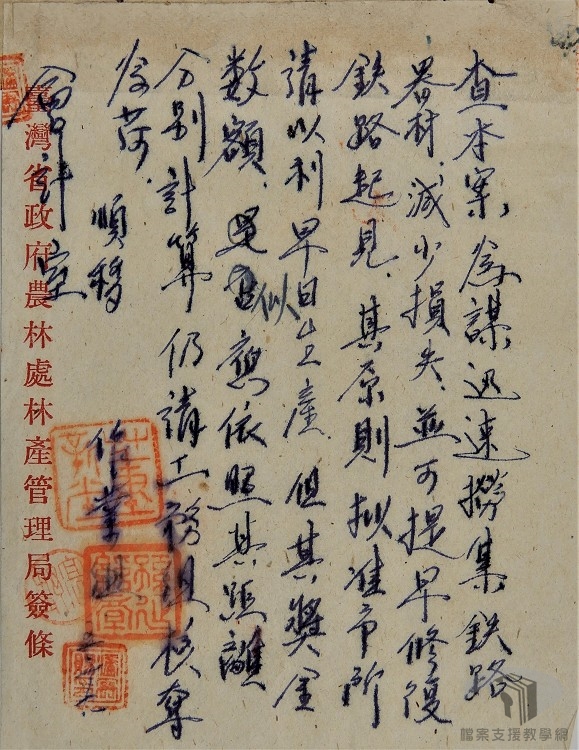 查本案為謀迅速撈集鉄路
器材、減少損失、並可提早修復
鉄路起見、其原則拟准予所
請以利早日生產、但其奬金
数額、似應依照其距離
分别計算仍請工務組核奪
為荷、
順移
會計室
作業組
臺灣省政府農林處林產管理局簽條
檔案支援教學網